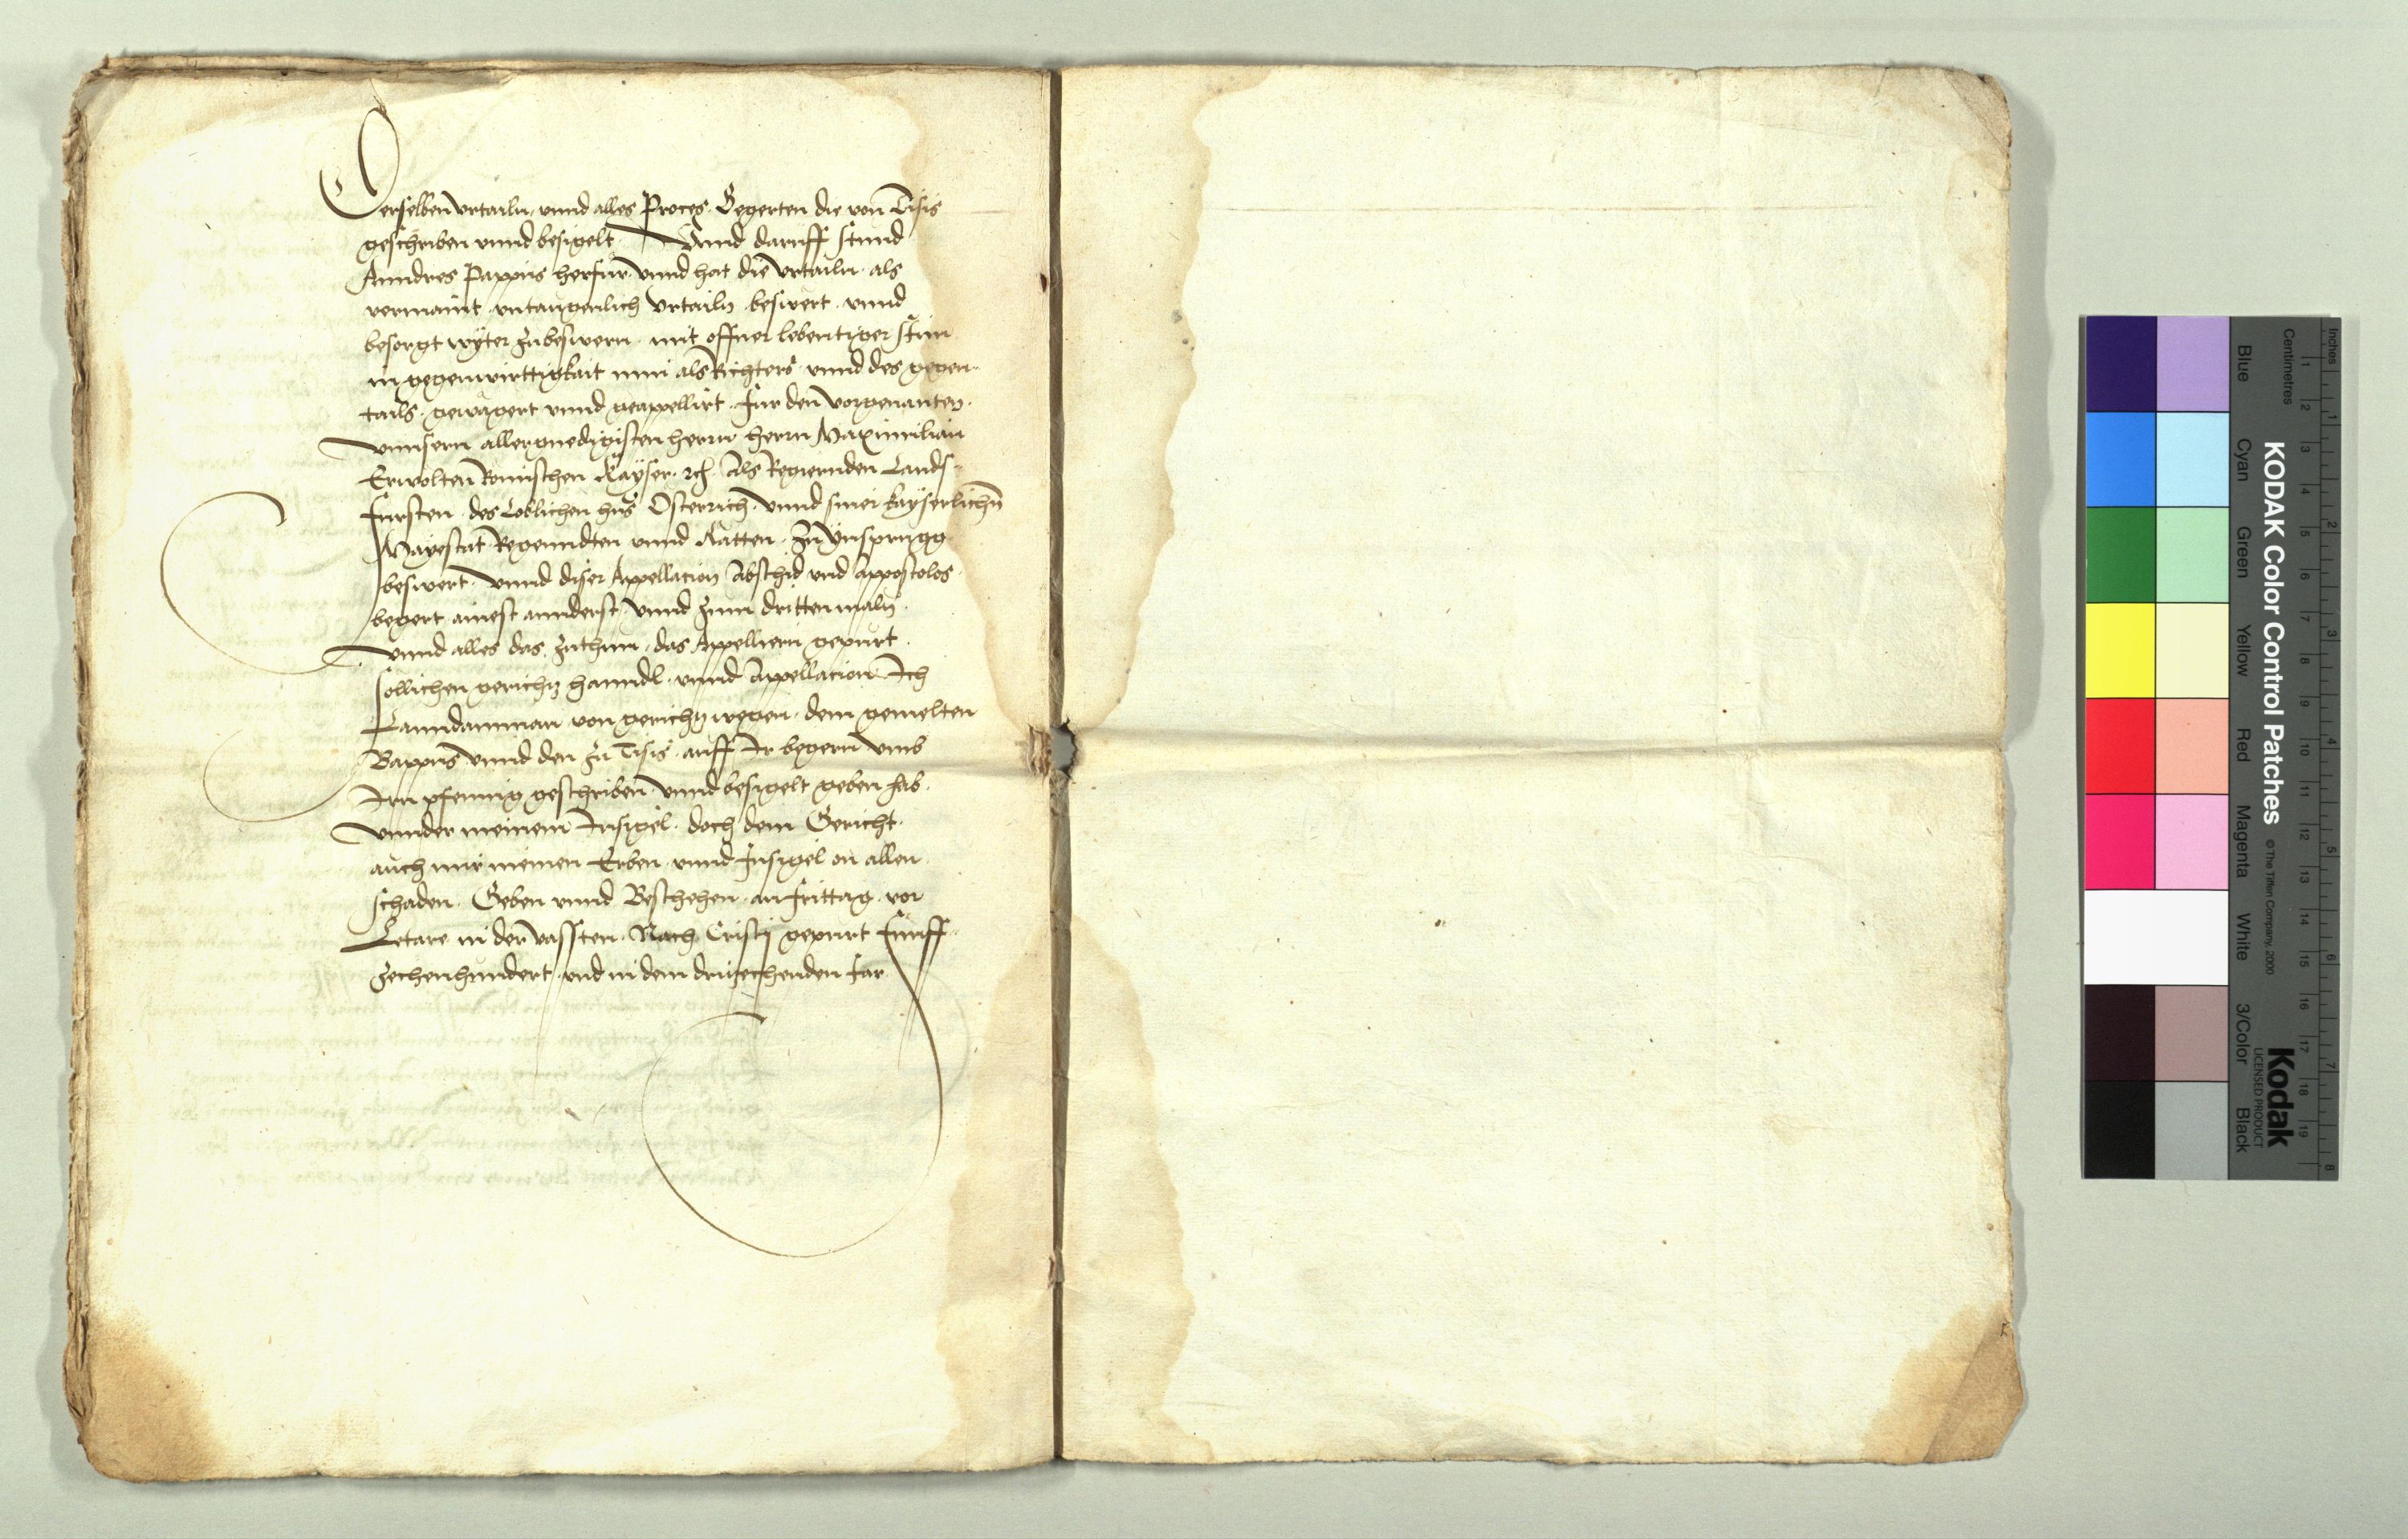 Derselben vrtailn, vnnd alles Proces. Begerten die von Tisis
geschriben vnnd besigelt. Vnnd daruff stund
Anndres Pappus herfur. vnnd hat die vrtailn. als
vermaint. vntaugenlich vrtailn. beswert. vnnd
besorgt wyter zubeswern. mit offner lebentiger stim
in gegenwirttigkait mini als Richters vnnd des gegen-
tails. gewägert vnnd geappellirt. fur den vorgenanten.
vnnsern allergnedigisten herrn herrn Maximilian
Erwolten Romischen Kayser. etc. Als Regiernden Lands-
fursten. des Loblichen hus Osterrich. vnnd siner kayserlichn
Mayestat Regenndten vnnd Rätten. zu Ynsprugg
beswert. vnnd diser Appellacion Abschid vnd Appostolos.
begert. ainest annderst vnnd zum dritten maln.
vnnd alles das. zuthun, das Appelliern gepurt.
sollichen gerichtz hanndl. vnnd Appellacion Ich
Lanndamman von gerichtz wegen. dem gemelten
Bappus vnnd den zu Tisis. auff Ir begern vmb
Irn pfennig geschriben vnnd besigelt geben hab.
vnnder meinem Insigel. doch dem Gericht.
auch mir meinen Erben. vnnd Insigel on allen
schaden. Geben vnnd Beschehen. an frittag. vor
Letare in der vassten. Nach Cristj gepurt funff
zechenhundert. vnd in dem drizechenden Jar
Inches
Centimetres
1 2 3 4 5 6 7 8
1 2 3 4 5 6 7 8 9 10 11 12 13 14 15 16 17 18 19
KODAK Color Control Patches
© The Tiffen Company, 2000
Kodak
LICENSED PRODUCT
Blue Cyan Green Yellow Red Magenta White 3/Color Black